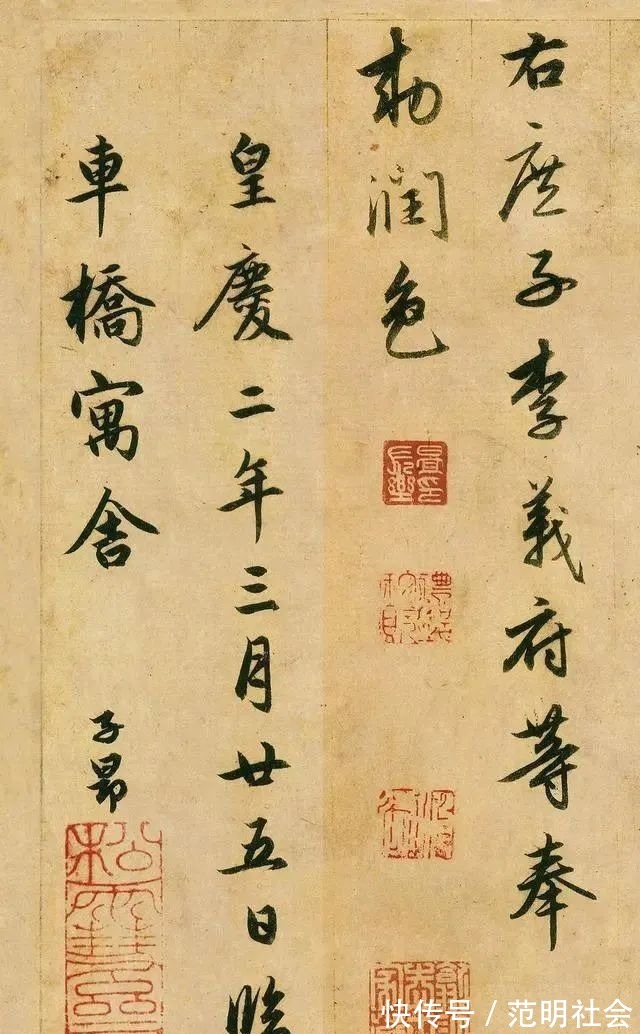 右庶子李義府等奉
勅潤色
皇慶二年三月廿五日臨
車橋寓舍
子昂
快传号/范明社会